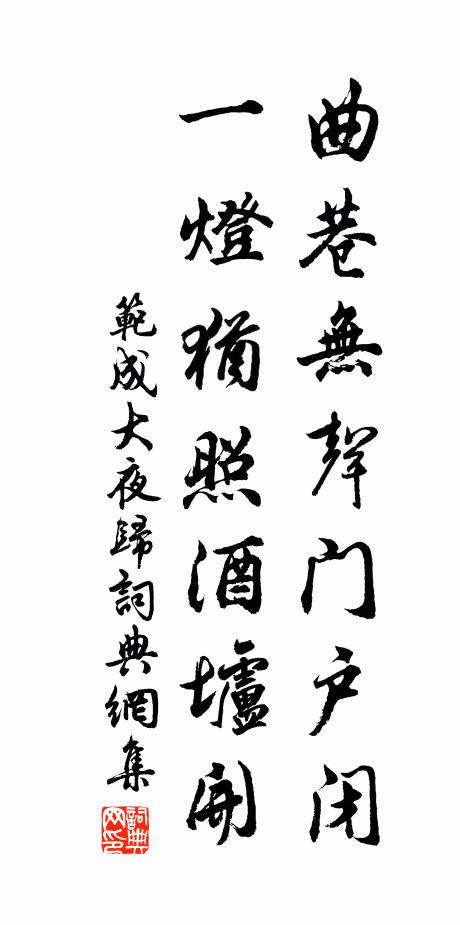 曲巷無聲门户闭
一燈猶照酒壚開
範成大夜歸詞典網集
詞典网印